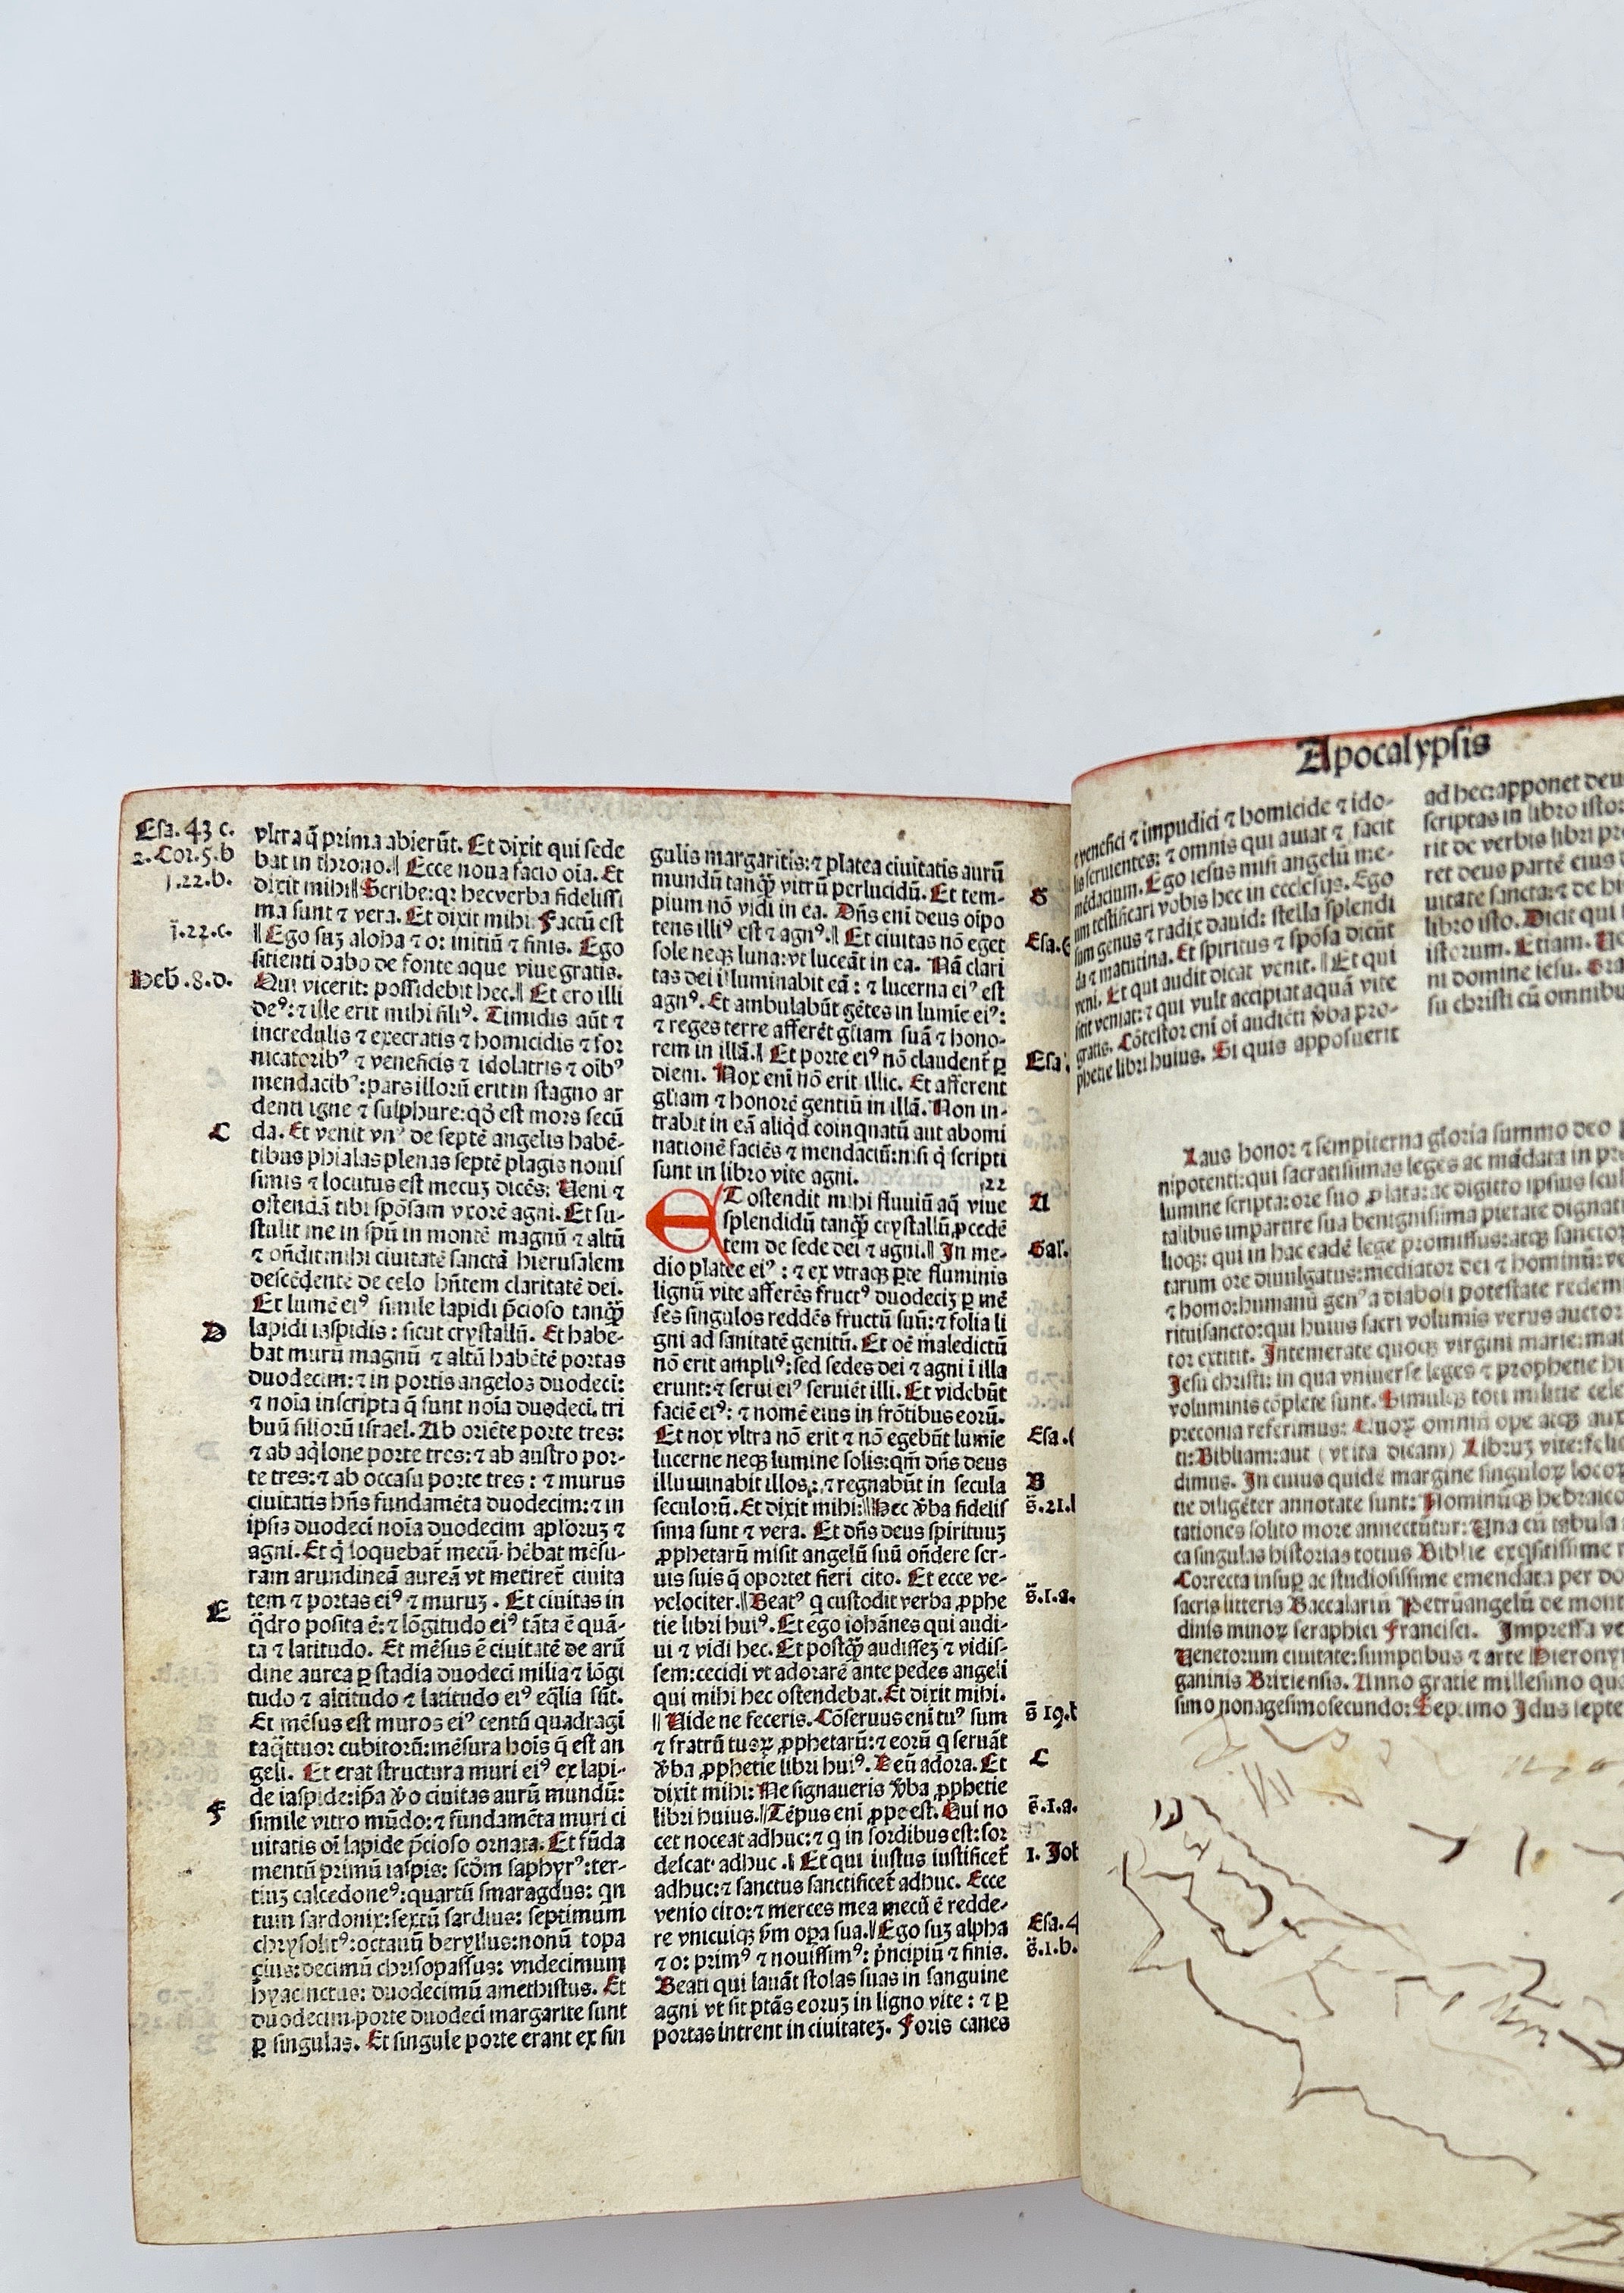 Esa. 43 c.
2. Cor. 5. b
j. 22. b.
j. 22. c.
Heb̄. 8. d.
C
D
E
F
vltra q̄ prima abierūt. Et dixit qui sede
bat in throno.‖ Ecce noua facio oīa. Et
dixit mihi‖ Scribe: qꝛ hec verba fidelissi
ma sunt ⁊ vera. Et dixit mihi. Factū est
‖Ego suꝫ alpha ⁊ o: initiū ⁊ finis. Ego
sitienti dabo de fonte aque viue gratis.
Qui vicerit: possidebit hec.‖ Et ero illi
deꝰ: ⁊ ille erit mihi filiꝰ. Timidis aūt ⁊
incredulis ⁊ execratis ⁊ homicidis ⁊ for
nicatoribꝰ ⁊ veneficis ⁊ idolatris ⁊ oībꝰ
mendacibꝰ: pars illorū erit in stagno ar
denti igne ⁊ sulphure: qd̄ est mors secū
da. Et venit vnꝰ de septē angelis habē-
tibus phialas plenas septē plagis nouis
simis ⁊ locutus est mecuꝫ dicēs: Ueni ⁊
ostendā tibi spōsam vxorē agni. Et su-
stulit me in spū in montē magnū ⁊ altū
⁊ on̄dit mihi ciuitatē sanctā hierusalem
descēdentē de celo hn̄tem claritatē dei.
Et lumē eiꝰ simile lapidi p̄cioso tanqꝫ
lapidi iaspidis: sicut crystallū. Et habe-
bat murū magnū ⁊ altū habētē portas
duodecim: ⁊ in portis angelos duodecī:
⁊ noīa inscripta q̄ sunt noīa duodecī. tri
buū filiorū israel. Ab oriēte porte tres:
⁊ ab aq̇lone porte tres: ⁊ ab austro por-
te tres: ⁊ ab occasu porte tres: ⁊ murus
ciuitatis hn̄s fundamēta duodecim: ⁊ in
ipsis duodecī noīa duodecim apl̄oruꝫ ⁊
agni. Et q̇ loquebat̄ mecū. hēbat mēsu-
ram arundineā aureā vt metiret̄ ciuita
tem ⁊ portas eiꝰ ⁊ muruꝫ. Et ciuitas in
q̄dro posita ē: ⁊ lōgitudo eiꝰ tāta ē quā-
ta ⁊ latitudo. Et mēsus ē ciuitatē de arū
dine aurea ꝑ stadia duodecī milia ⁊ lōgi
tudo ⁊ altitudo ⁊ latitudo eiꝰ eq̄lia sūt.
Et mēsus est muros eiꝰ centū quadragī
taq̄ttuor cubitorū: mēsura hoīs q̄ est an
geli. Et erat structura muri eiꝰ ex lapi-
de iaspide: ip̄a v̄o ciuitas aurū mundū:
simile vitro mūdo: ⁊ fundamēta muri ci
uitatis oī lapide p̄cioso ornata. Et fūda
mentū primū iaspis: scd̄m saphyrꝰ: ter-
tiuꝫ calcedoneꝰ: quartū smaragdus: qn
tum sardonix: sextū sardius: septimum
chrysolitꝰ: octauū beryllus: nonū topa
cius: decimū chrisopassus: vndecimum
hyacinctus: duodecimū amethistus. Et
duodecim porte duodecī margarite sunt
ꝑ singulas. Et singule porte erant ex sin
gulis margaritis: ⁊ platea ciuitatis aurū
mundū tanqꝫ vitrū perlucidū. Et tem-
plum nō vidi in ea. Dn̄s enī deus oīpo
tens illiꝰ est ⁊ agnꝰ.‖ Et ciuitas nō eget
sole neqꝫ luna: vt luceāt in ea. Nā clari
tas dei illuminabit eā: ⁊ lucerna eiꝰ est
agnꝰ. Et ambulabūt gētes in lumīe eiꝰ:
⁊ reges terre afferēt gl̄iam suā ⁊ hono-
rem in illā.‖ Et porte eiꝰ nō claudent̄ ꝑ
diem. Nox enī nō erit illic. Et afferent
gl̄iam ⁊ honorē gentiū in illā. Non in-
trabit in eā aliq̇d coinquatū aut abomi
nationē faciēs ⁊ mendaciū: nisi q̇ scripti
sunt in libro vite agni. 22
ET ostendit mihi fluuiū aq̄ viue
splendidū tanqꝫ crystallū, ꝓcedē
tem de sede dei ⁊ agni.‖ In me-
dio platee eiꝰ: ⁊ ex vtraqꝫ ꝑte fluminis
lignū vite afferēs fructꝰ duodeciꝫ ꝑ mē
ses singulos reddēs fructū suū: ⁊ folia li
gni ad sanitatē gentiū. Et oē maledictū
nō erit ampliꝰ: sed sedes dei ⁊ agni ī illa
erunt: ⁊ serui eiꝰ seruiēt illi. Et videbūt
faciē eiꝰ: ⁊ nomē eius in frōtibus eorū.
Et nox vltra nō erit ⁊ nō egebūt lumīe
lucerne neqꝫ lumine solis: qm̄ dn̄s deus
illuminabit illos: ⁊ regnabūt in secula
seculorū. Et dixit mihi:‖ Hec v̄ba fidelis
sima sunt ⁊ vera. Et dn̄s deus spirituuꝫ
ꝓphetarū misit angelū suū on̄dere ser-
uis suis q̄ oportet fieri cito. Et ecce ve-
velociter.‖ Beatꝰ q̇ custodit verba ꝓphe
tie libri huiꝰ. Et ego iohānes qui audi-
ui ⁊ vidi hec. Et postqꝫ audisseꝫ ⁊ vidis-
sem: cecidi vt adorarē ante pedes angeli
qui mihi hec ostendebat. Et dixit mihi.
‖ Uide ne feceris. Cōseruus enī tuꝰ sum
⁊ fratrū tuoꝝ ꝓphetarū: ⁊ eorū q̇ seruāt
v̄ba ꝓphetie libri huiꝰ. Deū adora. Et
dixit mihi: Ne signaueris v̄ba ꝓphetie
libri huius.‖ Tēpus enī ꝓpe est. Qui no
cet noceat adhuc: ⁊ q̇ in sordibus est: sor
descat adhuc.‖ Et qui iustus iustificet̄
adhuc: ⁊ sanctus sanctificet̄ adhuc. Ecce
venio cito: ⁊ merces mea mecū ē redde-
re vnicuiqꝫ ẜm opa sua.‖ Ego suꝫ alpha
⁊ o: primꝰ ⁊ nouissimꝰ: p̄ncipiū ⁊ finis.
Beati qui lauāt stolas suas in sanguine
agni vt sit ptās eoruꝫ in ligno vite: ⁊ ꝑ
portas intrent in ciuitateꝫ. Foris canes
G
Esa.
Esa.
A
Gal.
Esa.
B
s̄. 21.
s̄. 1. a.
s̄ 19.
C
s̄. 1. a.
1. Joh
Esa. 4
s̄. 1. b.
Apocalypsis
venefici ⁊ impudici ⁊ homicide ⁊ ido-
lis seruientes: ⁊ omnis qui amat ⁊ facit
mēdacium. Ego iesus misi angelū me-
um testificari vobis hec in ecclesijs. Ego
sum genus ⁊ radix dauid: stella splendi
da ⁊ matutina. Et spiritus ⁊ spōsa dicūt
veni. Et qui audit dicat venit.‖ Et qui
sitit veniat: ⁊ qui vult accipiat aquā vite
gratis. Cōtestor enī oī audiēti v̄ba pro-
phetie libri huius. Si quis apposuerit
ad hec: apponet deu
scriptas in libro isto
rit de verbis libri pr
ret deus partē eius
uitate sancta: ⁊ de hi
libro isto. Dicit qui
istorum. Etiam.
ni domine iesu. Gra
su christi cū omnibu
Laus honor ⁊ sempiterna gloria summo deo
nipotenti: qui sacratissimas leges ac mādata in pr
lumine scripta: ore suo ꝓlata: ac digitto ipsius scul
talibus impartire sua benignissima pietate dignat
lioqꝫ: qui in hac eadē lege promissus: atqꝫ sancto
tarum ore diuulgatus: mediator dei ⁊ hominū: ve
⁊ homo: humanū genꝰ a diaboli potestate redem
rituisancto: qui huius sacri volumis verus auctor
tor extitit. Intemerate quoqꝫ virgini marie: ma
Jesu christi: in qua vniuerse leges ⁊ prophetie hu
voluminis cōplete sunt. Simulqꝫ toti militie cele
preconia referimus: Quoꝝ omniū ope atqꝫ aux
ti: Bibliam: aut (vt ita dicam) Libruꝫ vite: feli
dimus. In cuius quidē margine singuloꝝ locoꝝ
tie diligēter annotate sunt: Nominūqꝫ hebraico
tationes solito more annectūtur: Una cū tabula
ca singulas historias totius Biblie exq̇sitissime
Correcta insuꝑ ac studiosissime emendata per do
sacris litteris Baccalariū Petrūangelū de mont
dinis minoꝝ seraphici Francisci. Impressa ve
Uenetorum ciuitate: sumptibus ⁊ arte Hierony
ganinis Brixiensis. Anno gratie millesimo qua
simo nonagesimosecundo: Septimo Idus septe